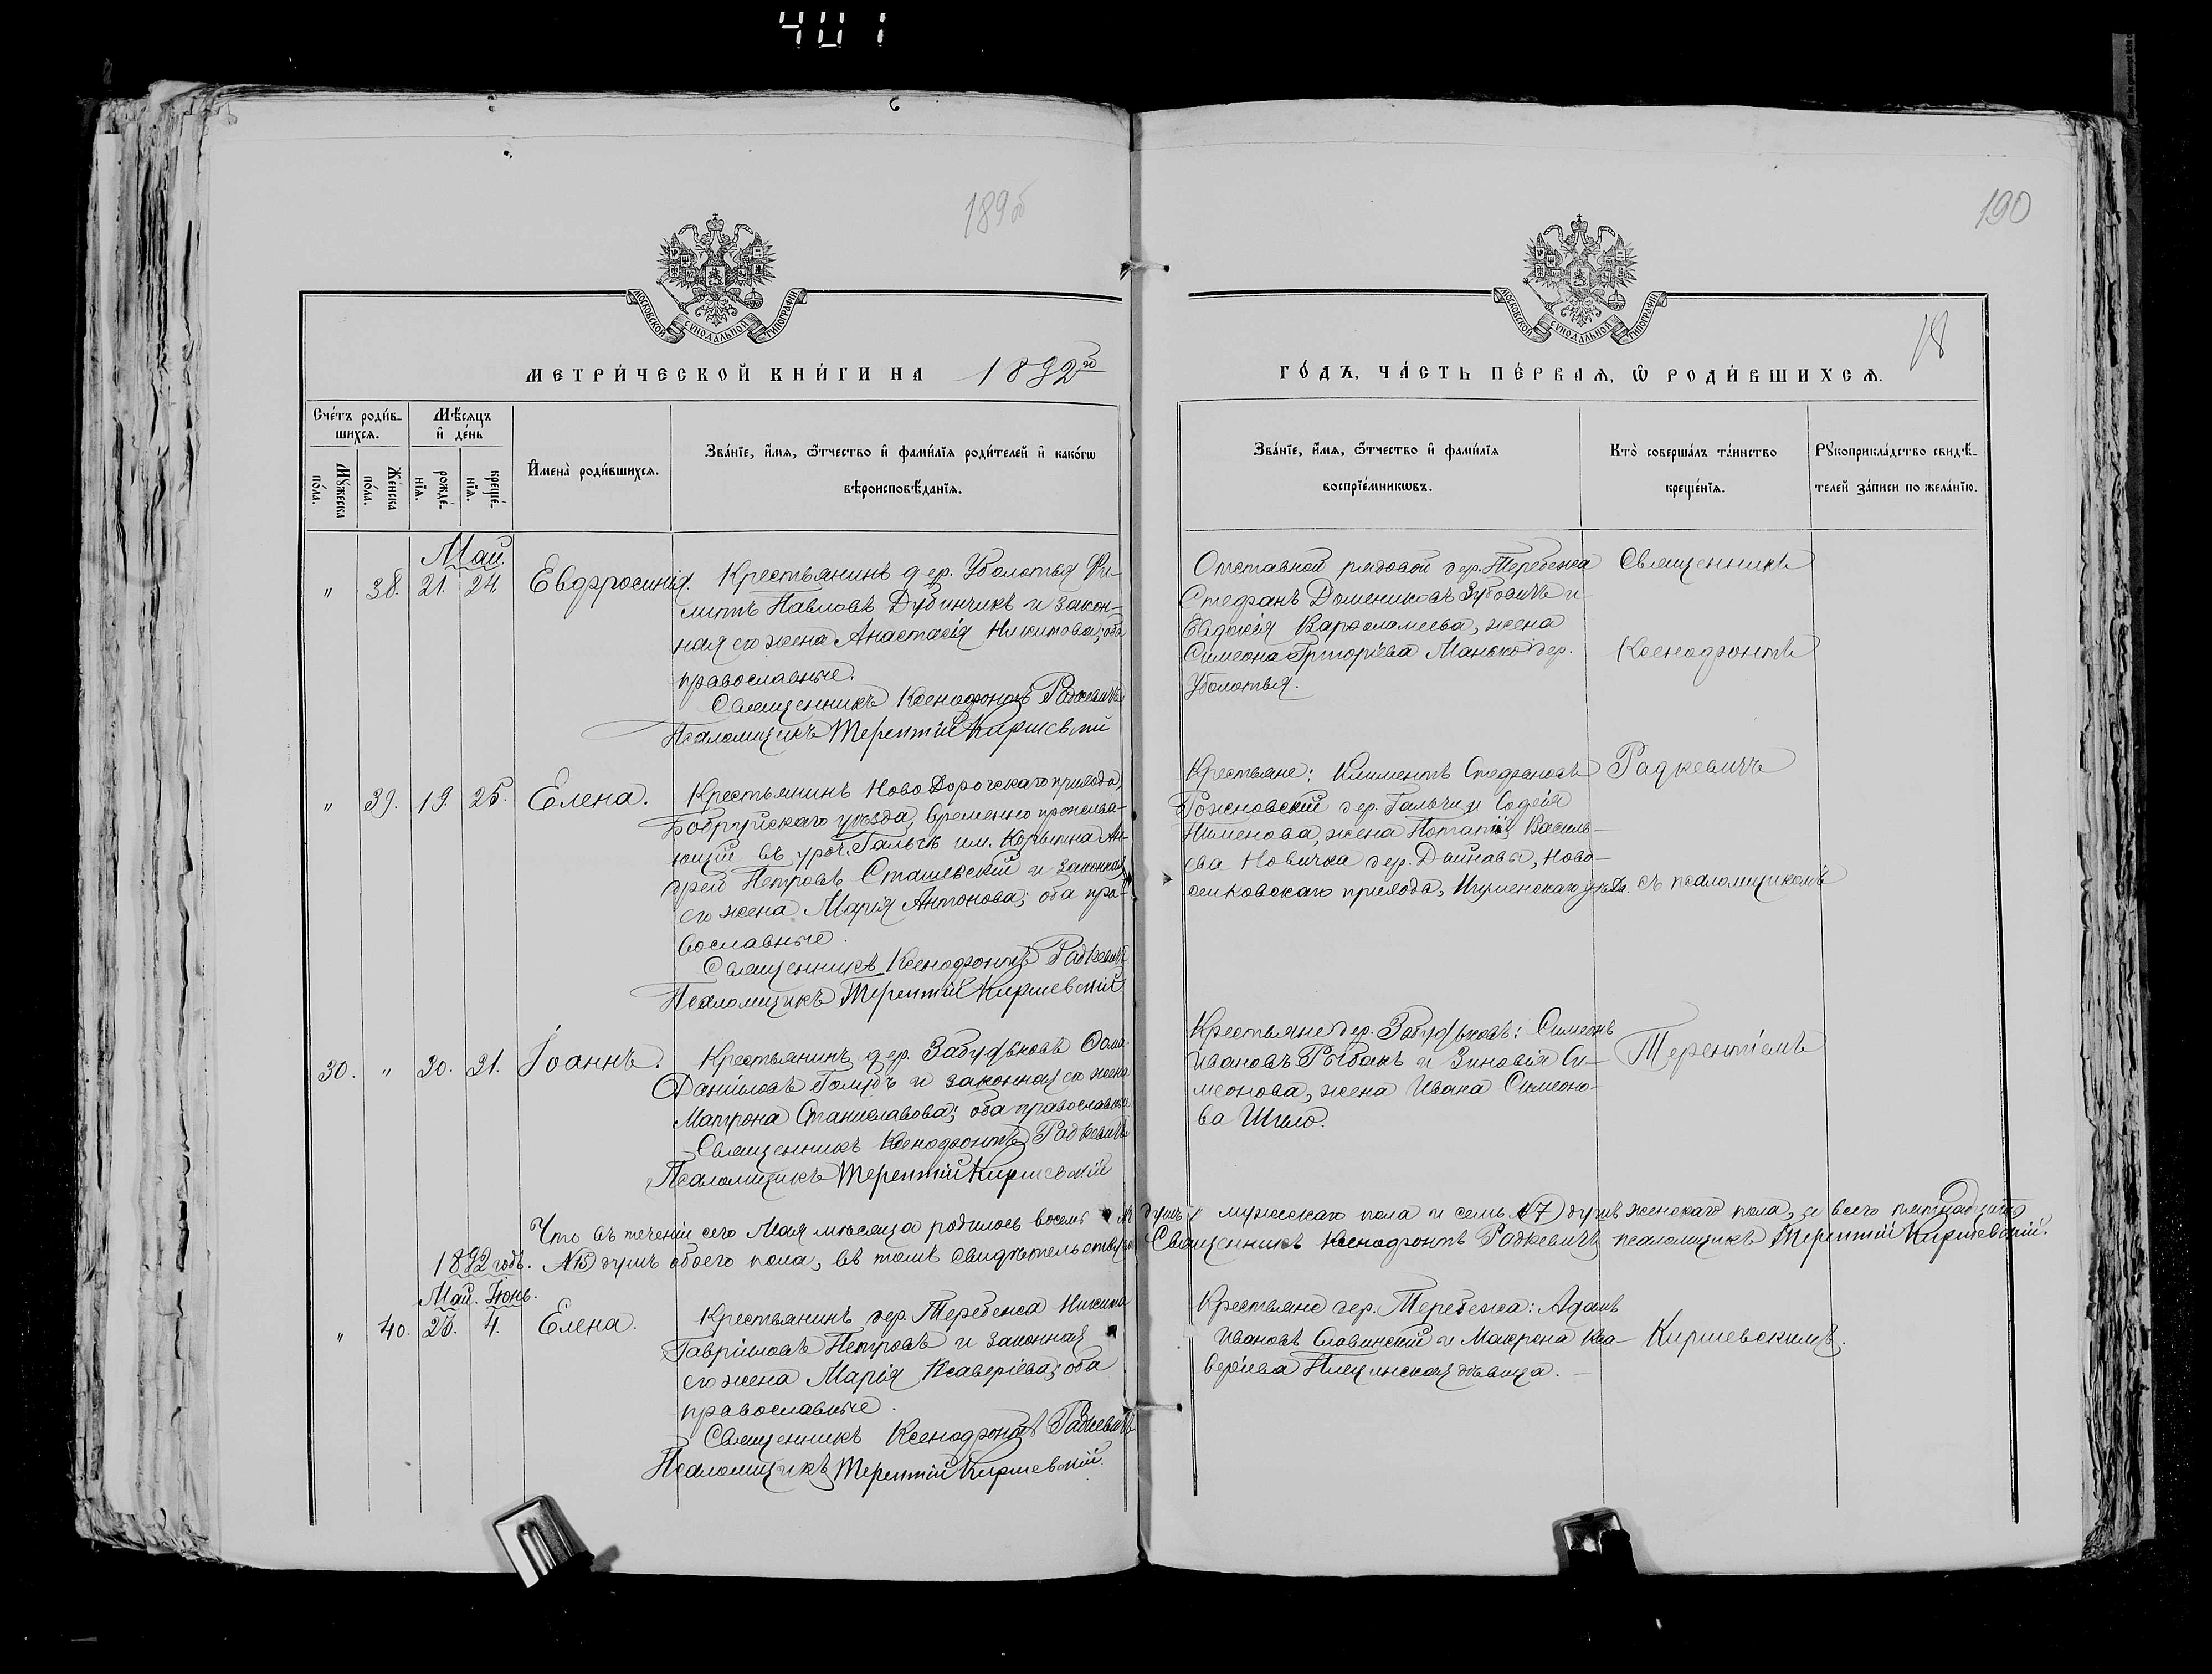 401
189об
190
18
МОСКОВСКОЙ СѴНОДАЛЬНОЙ ТИПОГРАФІИ
МОСКОВСКОЙ СѴНОДАЛЬНОЙ ТИПОГРАФІИ
МЕТРИ́ЧЕСКОЙ КНИ́ГИ НА 1892й
ГО́ДЪ, ЧА́СТЬ ПЕ́РВАѦ, Ѡ РОДИ́ВШИХСѦ.
Сче́тъ роди́в-
шихсѧ.
Мѹ́жеска по́ла.
Же́нска по́ла.
Мѣ́сѧцъ
и҆ де́нь
рожде́-
нїѧ.
креще́-
нїѧ.
И҆мена̀ роди́вшихсѧ.
Зва́нїе, и҆́мѧ, ѻ҆́тчество и҆ фами́лїѧ роди́телей и҆ како́гѡ
вѣроисповѣ́данїѧ.
Зва́нїе, и҆́мѧ, ѻ҆́тчество и҆ фами́лїѧ
воспрїе́мникѡвъ.
Кто̀ соверша́лъ та́инство
креще́нїѧ.
Рꙋкоприкла́дство свидѣ́-
телей за́писи по жела́нїю.
Май.
" 38. 21. 24. Евфросинія. Крестьянинъ дер. Уболотья Фи-
липъ Павловъ Дубинчикъ и закон-
ная его жена Анастасія Никитова; оба
православные.
Священникъ Ксенофонтъ Радкевичъ
Псаломщикъ Терентій Киршевскій
Отставной рядовой дер. Теребежа
Стефанъ Домениковъ Зубовичъ и
Евдокія Варфоломеева, жена
Симеона Григоріева Манько дер.
Уболотья.
Священникъ
Ксенофонтъ
" 39. 19. 25. Елена. Крестьянинъ Ново Дорогскаго прихода,
Бобруйскаго уѣзда, временно прожива-
ющій въ уроч. Гальчѣ им. Ан-
дрей Петровъ Сташевскій и законная
его жена Марія Антонова; оба пра-
вославные.
Священникъ Ксенофонтъ Радкевичъ
Псаломщикъ Терентій Киршевскій
Крестьяне: Климентъ Стефановъ
Рожновскій дер. Гальчи и Софія
Пименова, жена Потапія Василь-
ева Новичка дер. Дайнавы, Ново-
селковскаго прихода, Игуменскаго уѣзда.
Радкевичъ
съ псаломщикомъ
30. " 20. 31. Іоаннъ. Крестьянинъ дер. Ѳома
Даніиловъ Голубъ и законная его жена
Матрона Станиславова; оба православные
Священникъ Ксенофонтъ Радкевичъ
Псаломщикъ Терентій Киршевскій
Крестьяне дер. Симеонъ
Ивановъ Рыбакъ и Зиновія Си-
меонова, жена Ивана Симеоно-
ва Шило.
Терентіемъ
Что въ теченіи сего Мая мѣсяца родилось восемь душъ мужескаго пола и семь (7) душъ женскаго пола, а всего пятнадцать
(15) душъ обоего пола, въ томъ свидѣтельствуемъ Священникъ Ксенофонтъ Радкевичъ псаломщикъ Терентій Киршевскій.
1892 годъ.
Май. Іюнь.
" 40. 23. 4. Елена. Крестьянинъ дер. Теребежа Никита
Гавріиловъ Петровъ и законная
его жена Марія Ксаверіева; оба
православные.
Священникъ Ксенофонтъ Радкевичъ
Псаломщикъ Терентій Киршевскій.
Крестьяне дер. Теребежа: Адамъ
Ивановъ Славинскій и Макрена Кса-
веріева дѣвица.
Киршевскимъ.